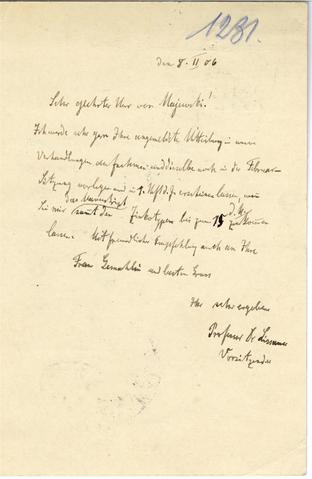 1281.
den 8. II 06
Sehr geehrter Herr von Majewski!
Ich werde sehr gern Ihre angemeldete Mitteilung in unsere
Verhandlungen aufnehmen und dieselbe noch in der Februar-
Sitzung vorlegen und in 1. Heft d. J. erscheinen lassen, wenn
das Manuskript
Sie mir samt den Zinkotypen bis zum 15 d. M. zukommen
lassen. Mit freundlicher Empfehlung auch an Ihre
Frau Gemahlin und besten Gruss
Ihr sehr ergebener
Professor Dr Lissauer
Vorsitzender